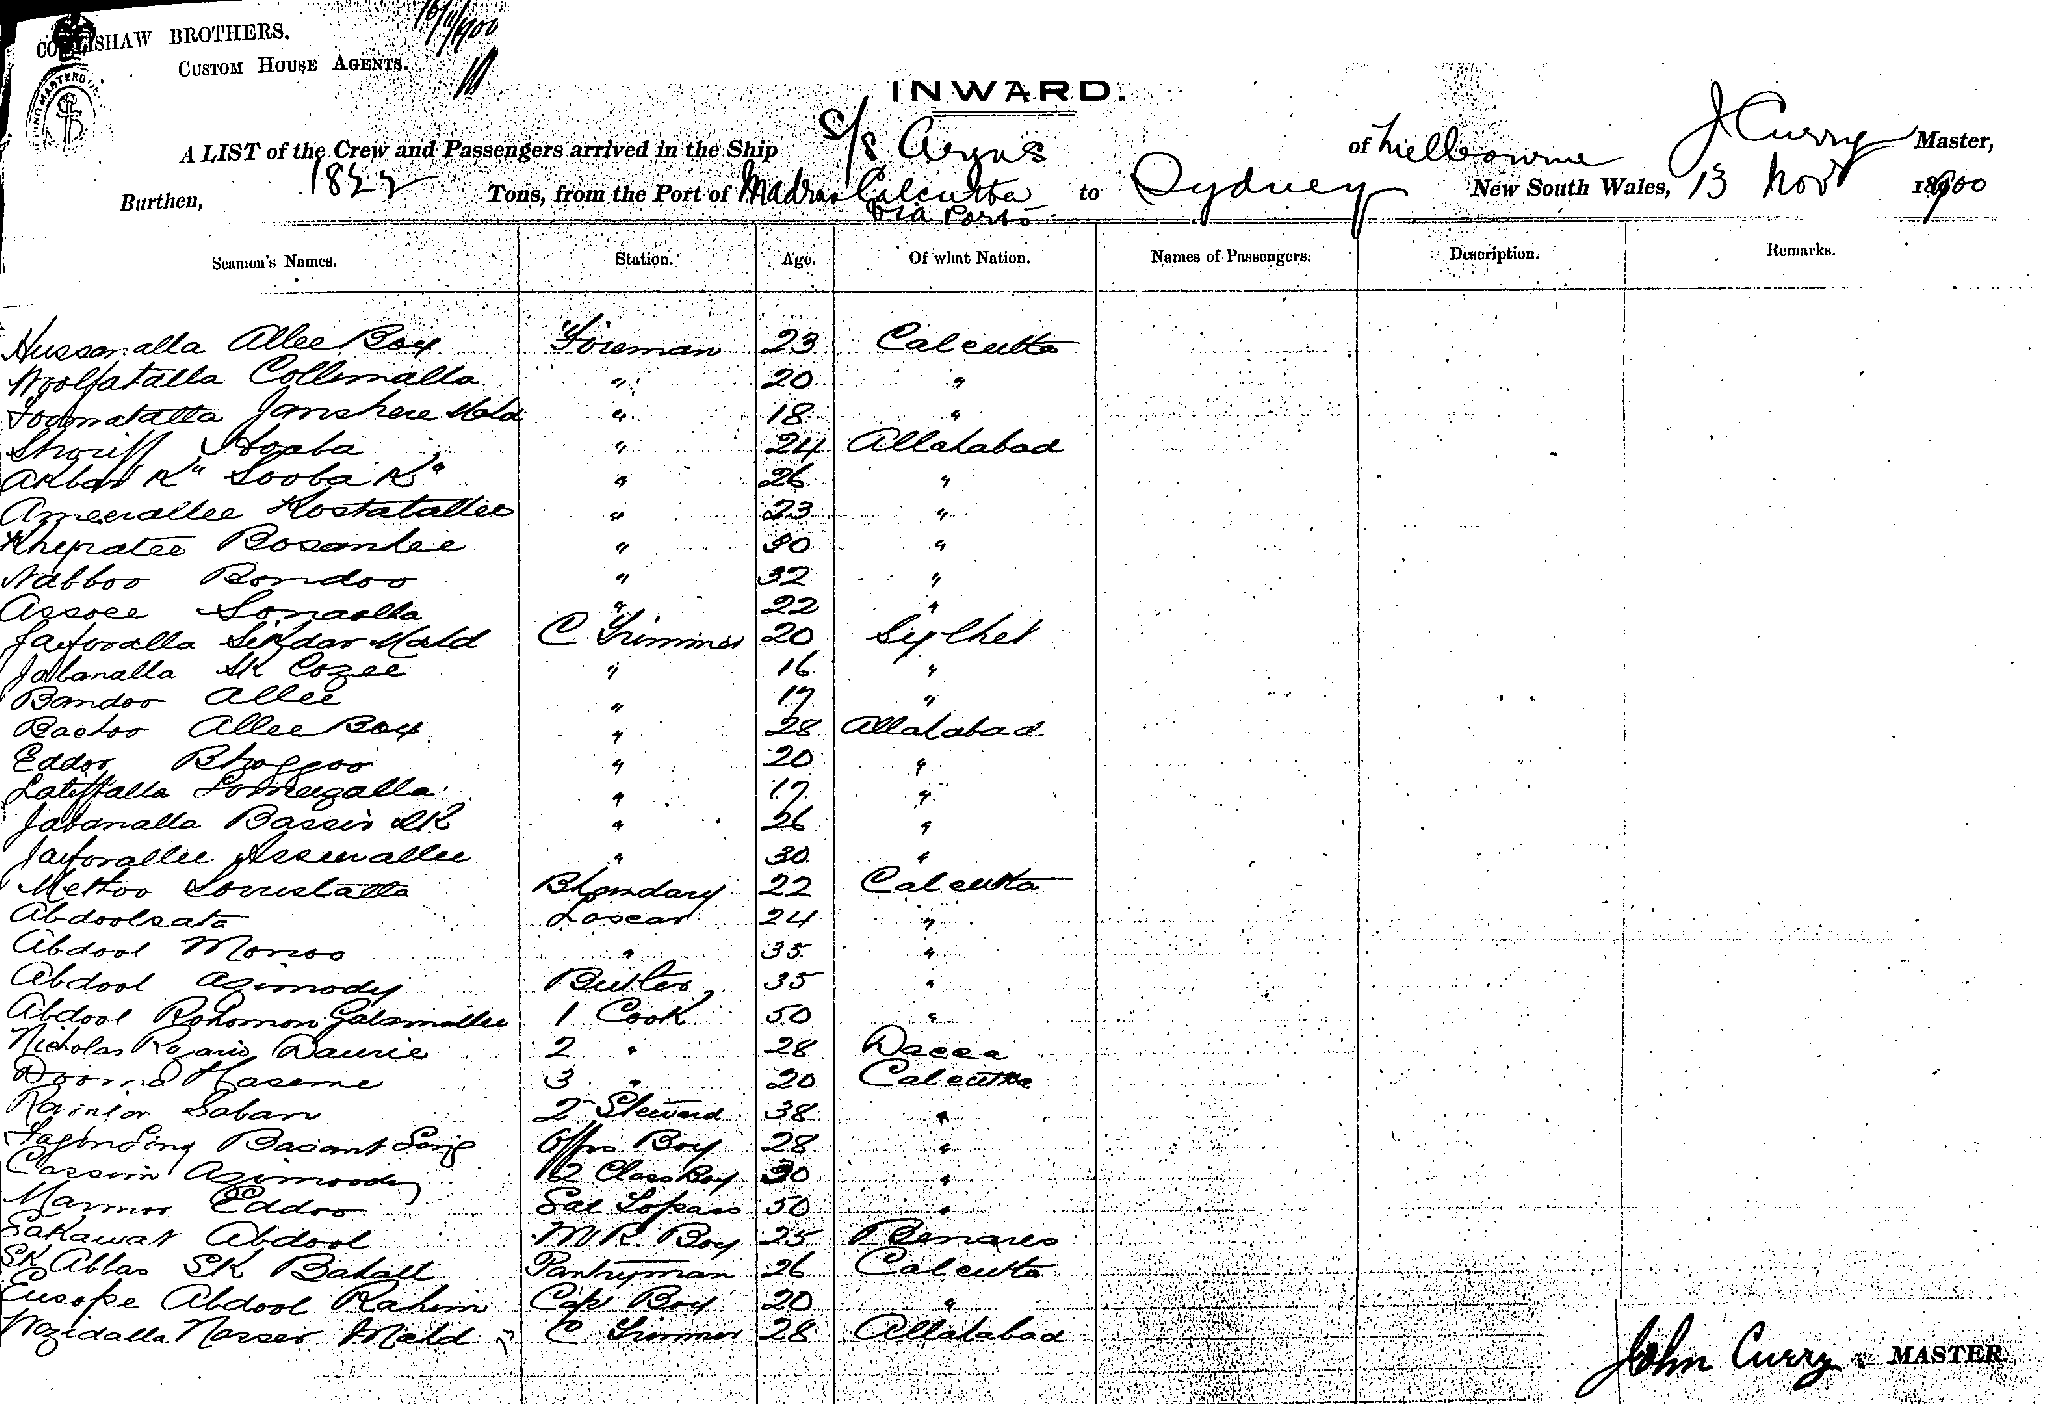 COLLISHAW BROTHERS.
CUSTOM HOUSE AGENTS.
INWARD.
A LIST of the Crew and Passengers arrived in the Ship S/S Argus of Melbourne J Curry Master,
Burthen, Tons, from the Port of Madras Calcutta to Sydney New South Wales, 13 Nov 1900
via Ports
Seamen's Names. Station. Age. Of what Nation. Names of Passengers. Description. Remarks.
Hussanalla Allee Box Fireman 23 Calcutta
Woolfatalla Collimalla " 20 "
Toomatalla Janshere Mald " 18 "
Shariff " 24 Allahabad
Akbar Kn Sooba Kn " 26 "
Ameerallee Kostatallee " 23 "
Bosantee " 30 "
Nabboo Bondoo " 32 "
Assoce Sonaolla " 22 "
Jaforalla Sikdar Mald C Trimmer 20 Sylhet
Jabanalla SK Cozee " 16 "
Bandoo Allee " 17 "
Bachoo Allee Box " 28 Allahabad
Eddoo Bhoggoo " 20 "
Latiffalla " 17 "
Jabanalla Bassir SK " 26 "
Jaforallee Asserallee " 30 "
Methoo Bhandary 22 Calcutta
Abdoolsata Lascar 24 "
Abdool Monoo " 35 "
Abdool Azimody Butler 35 "
Abdool Rohomon Golamallee 1 Cook 50 "
Nicholas Rozario Daurie 2 " 28 Dacca
Haseme 3 " 20 Calcutta
Saban 2 Steward 38 "
Basant Sing Offrs Boy 28 "
Cassim Azimoody 2 Class Boy 30 "
Marmoo Eddoo Sal Topass 50 "
Sakawat Abdool M R Boy 25 Benares
SK Abbas SK Bahall Pantryman 26 Calcutta
Eusope Abdool Rahim Cap Boy 20 "
Wazidalla Nasser Mald C Trimmer 28 Allahabad
John Curry MASTER